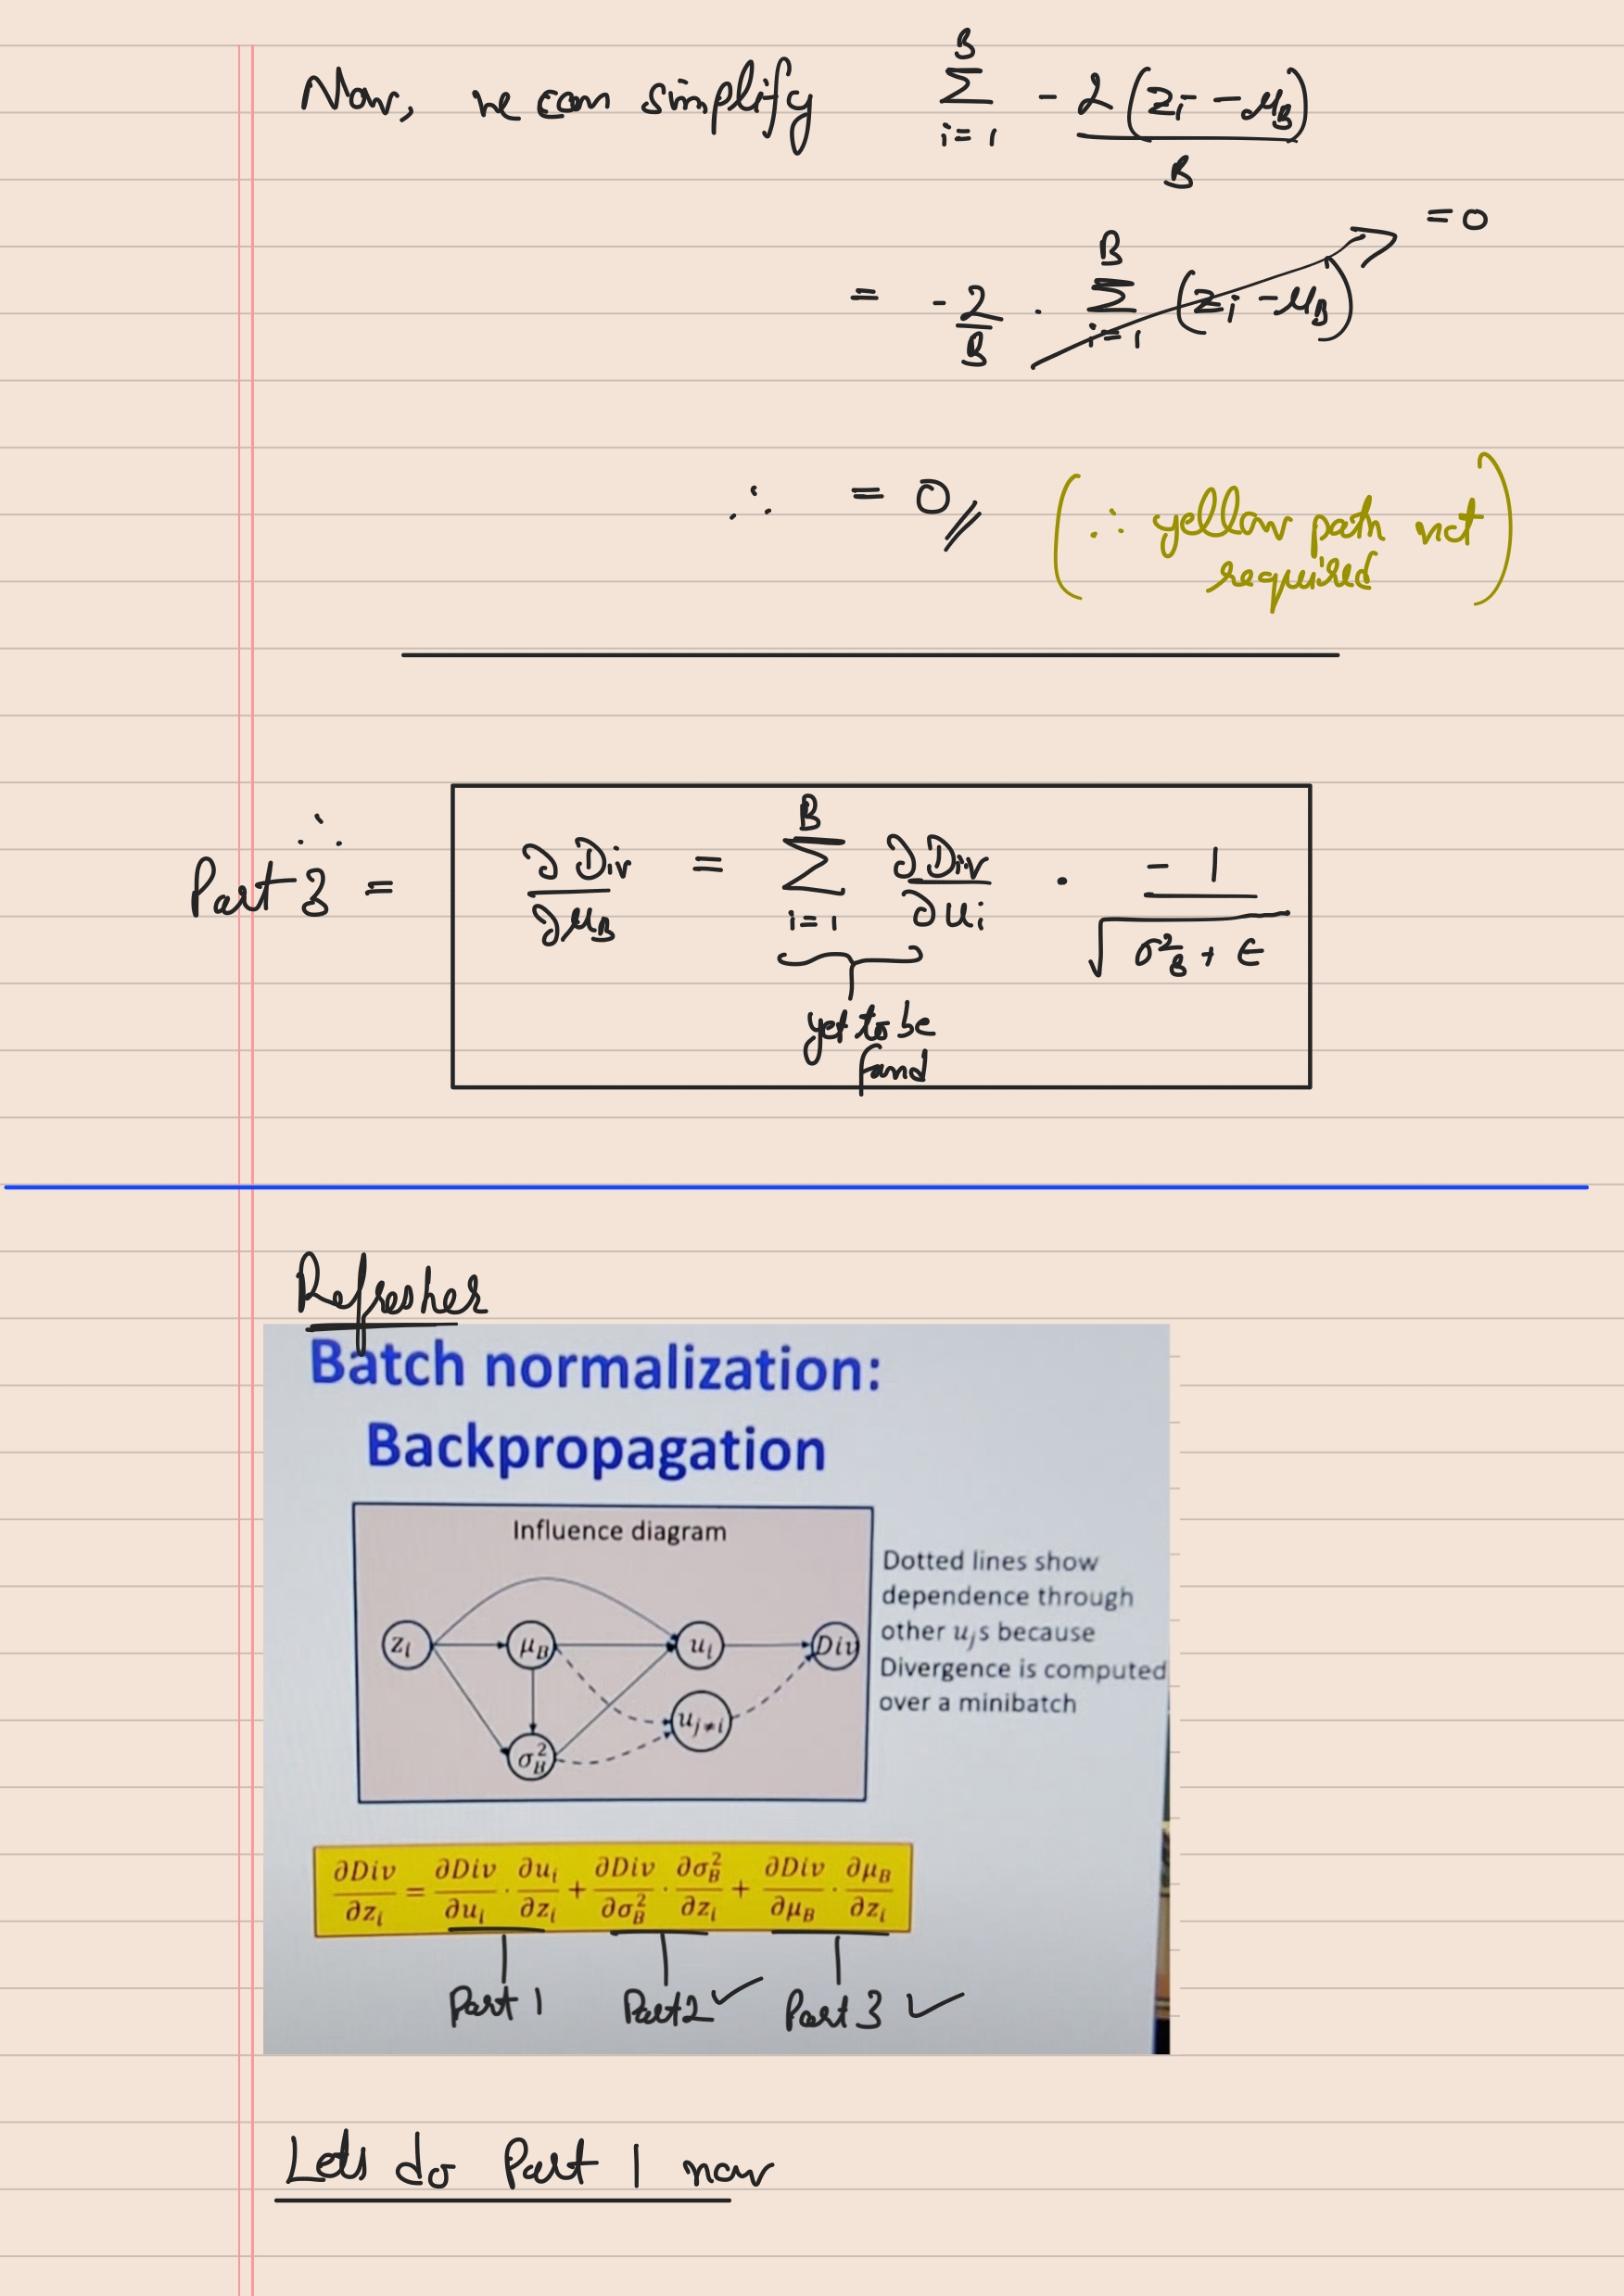 Now, we can simplify B ∑ i=1 - 2(zi - μB) / B
= -2/B · B ∑ i=1 (zi - μB) = 0
∴ = 0 (∴ yellow path not
required)
∴
Part 3 = ∂Div/∂μB = B ∑ i=1 ∂Div/∂ui · -1/√(σ²B + ϵ)
yet to be
found
Refresher
Batch normalization:
Backpropagation
Influence diagram
Dotted lines show
dependence through
other ujs because
Divergence is computed
over a minibatch
zi μB ui Div
uj≠i
σ²B
∂Div/∂zi = ∂Div/∂ui · ∂ui/∂zi + ∂Div/∂σ²B · ∂σ²B/∂zi + ∂Div/∂μB · ∂μB/∂zi
Part 1 Part2 ✓ Part 3 ✓
Lets do Part 1 now